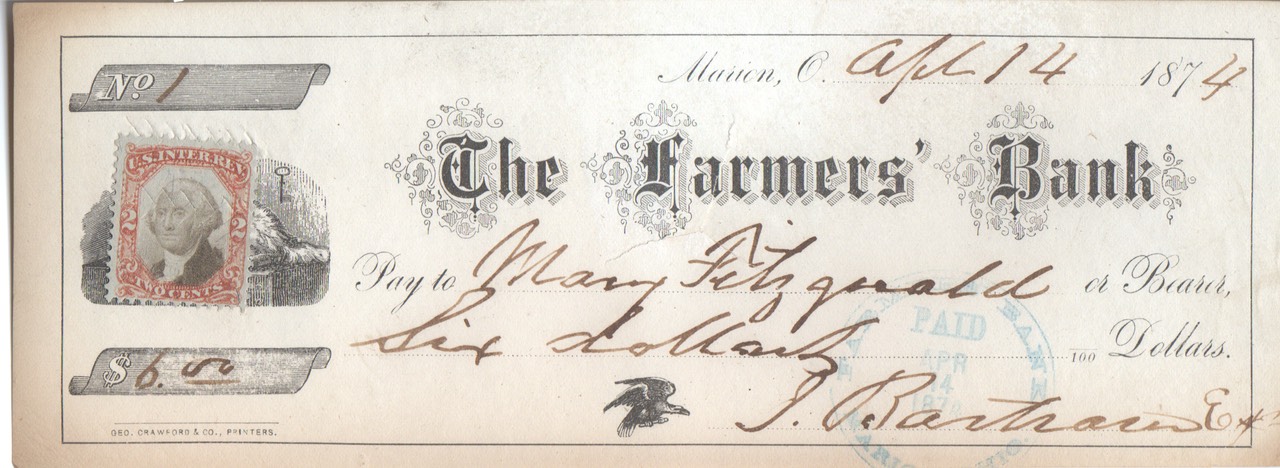 No. 1
Marion, O. Apl 14 1874
U.S. INTER. REV.
2 2
TWO CENTS
The Farmers' Bank
Pay to Mary Fitzgerald or Bearer,
Six dollars /100 Dollars.
$ 6.00
PAID
APR
14
187
BANK
GEO. CRAWFORD & CO., PRINTERS.